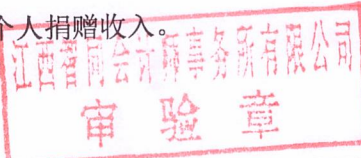 个人捐赠收入。
江西智同会计师事务所有限公司
审验章